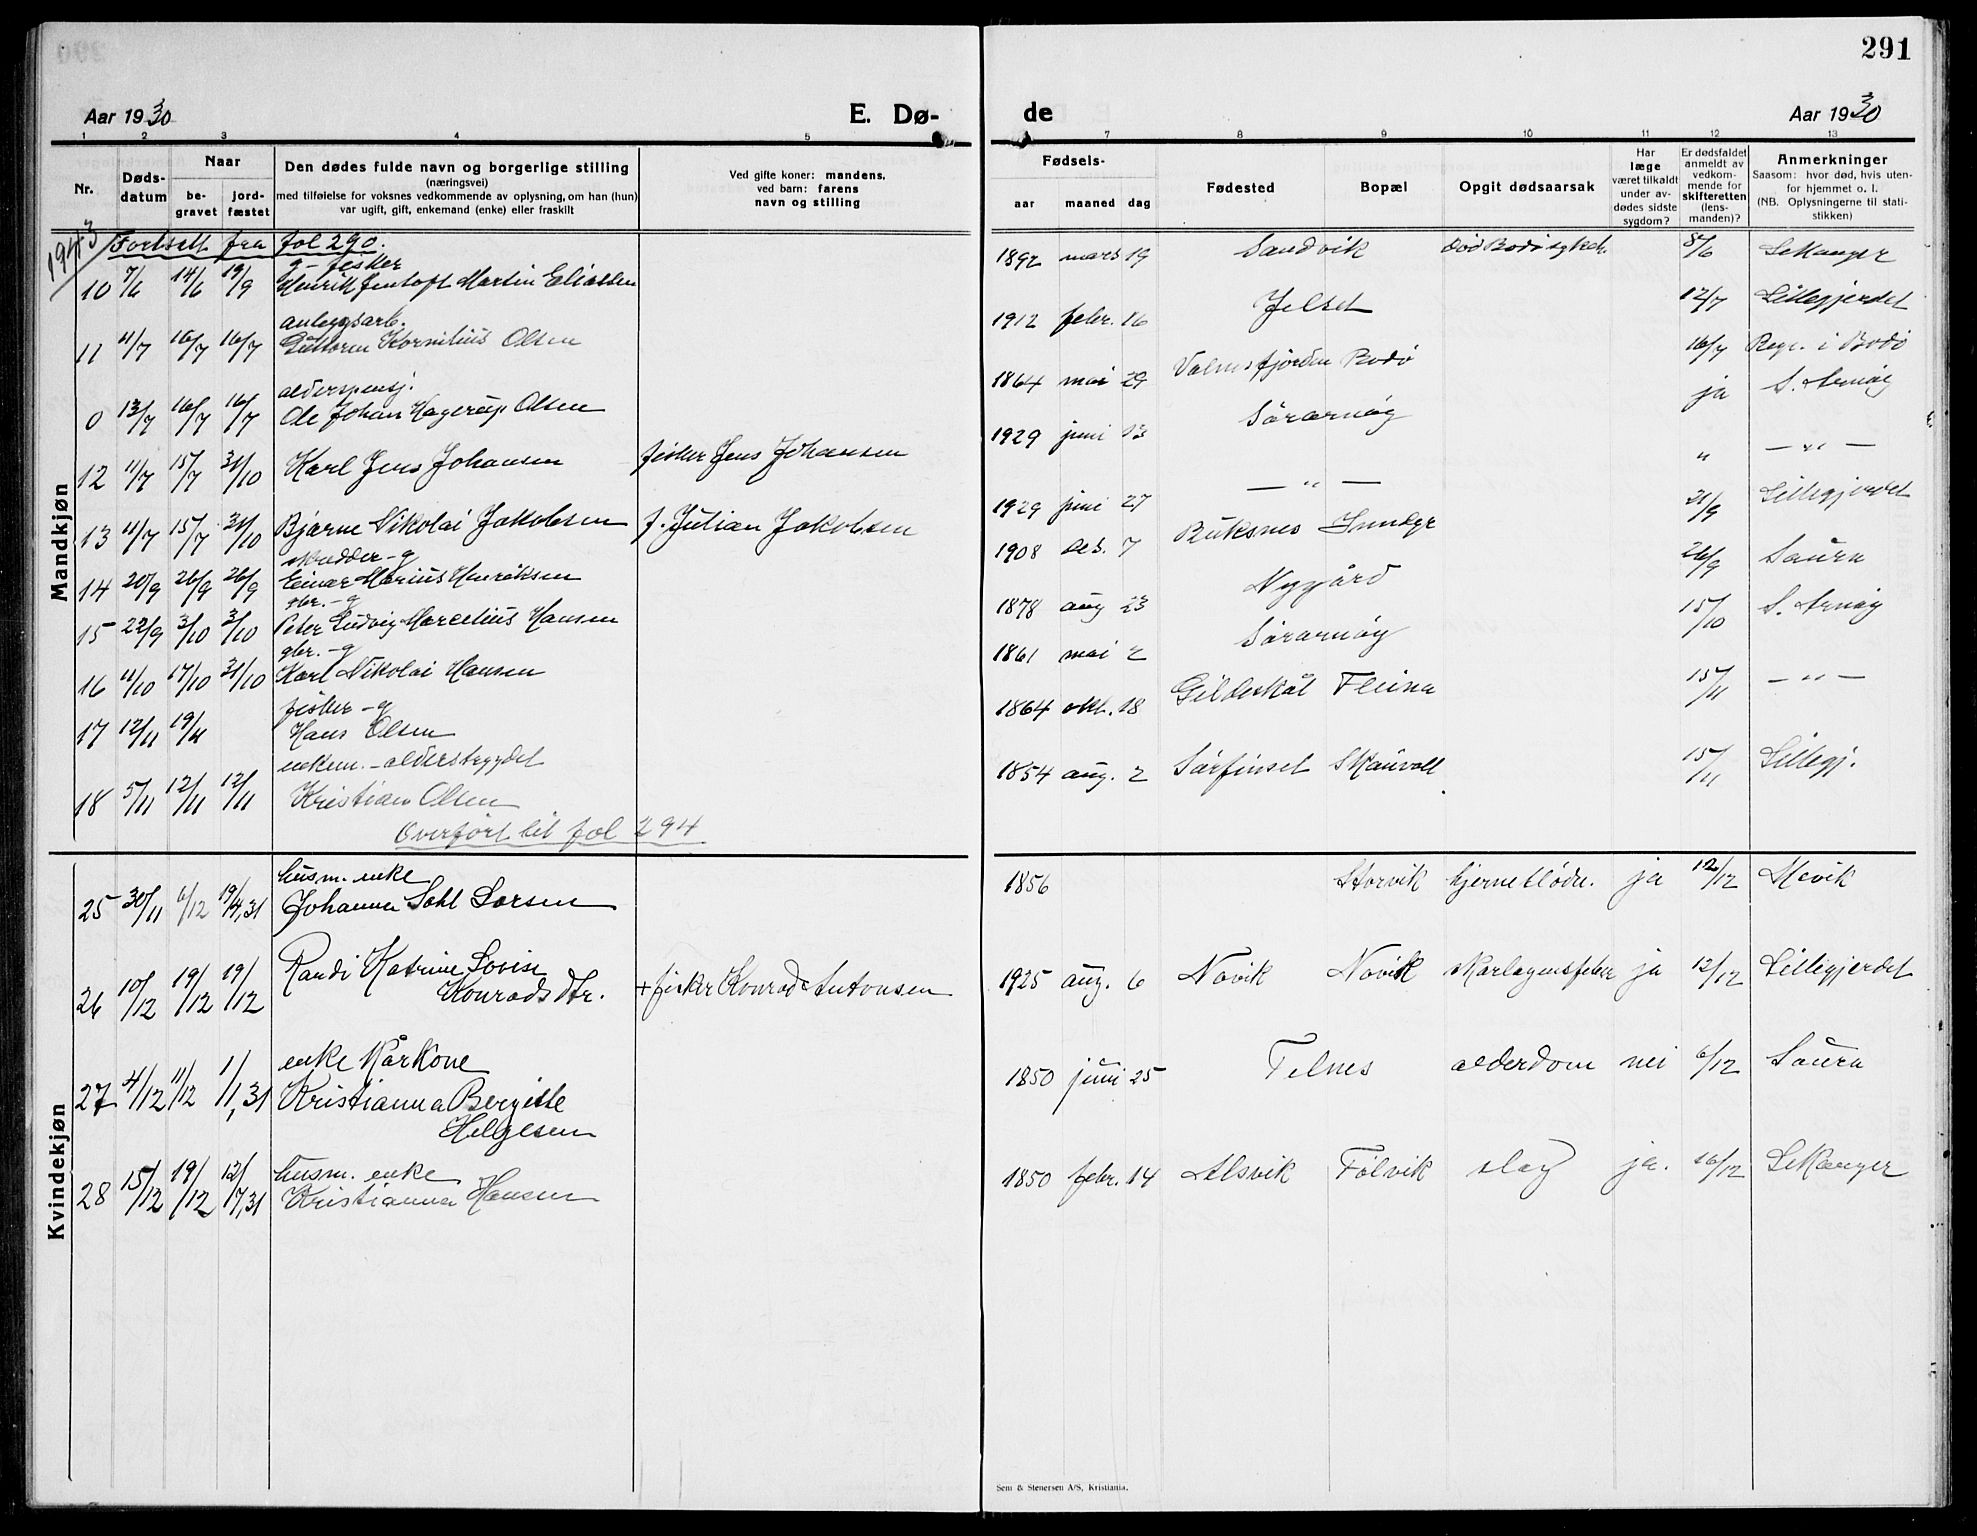 291
Aar 1930
E. Dø-
de
Aar 1930
1 2 3 4 5 7 8 9 10 11 12 13
Nr.
Døds-
datum
Naar
be-
gravet
jord-
fæstet
Den dødes fulde navn og borgerlige stilling
(næringsvei)
med tilføielse for voksnes vedkommende av oplysning, om han (hun)
var ugift, gift, enkemand (enke) eller fraskilt
Ved gifte koner: mandens,
ved barn: farens
navn og stilling
Fødsels-
aar maaned dag
Fødested
Bopæl
Opgit dødsaarsak
Har
læge
været tilkaldt
under av-
dødes sidste
sygdom?
Er dødsfaldet
anmeldt av
vedkom-
mende for
skifteretten
(lens-
manden)?
Anmerkninger
Saasom: hvor død, hvis uten-
for hjemmet o. l.
(NB. Oplysningerne til stati-
stikken)
Mandkjøn
1943
Fortsett fra fol 290.
g - fisker
10 7/6 14/6 19/9 Henrik Jentoft Martin Eliassen 1892 mars 19 Sandvik død Bodø sykeh. 8/6 Lekanger
anleggsarb.
11 11/7 16/7 16/7 Guttorm Kornilius Olsen 1912 febr. 16 Jelset 12/7 Lillegjerdet
alderspensj.
0 13/7 16/7 16/7 Ole Johan Hagerup Olsen 1864 mai 29 Valnesfjorden Bodø 16/7 Regr. i Bodø
12 11/7 15/7 31/10 Karl Jens Johansen fisker Jens Johansen 1929 juni 13 Sørarnøy ja S. Arnøy
13 11/7 15/7 31/10 Bjarne Nikolai Jakobsen f. Julian Jakobsen 1929 juni 27 — " — " — " —
skredder - g
14 20/9 26/9 26/9 Einar Marius Henriksen 1908 des. 7 Buksnes Inndyr 21/9 Lillegjerdet
gbr. - g
15 22/9 3/10 3/10 Peter Ludvig Marcelius Hansen 1878 aug 23 Nygård 26/9 Saura
gbr. - g
16 11/10 17/10 31/10 Karl Nikolai Hansen 1861 mai 2 Sørarnøy 15/10 S. Arnøy
fisker - g
17 12/11 19/11 Hans Olsen 1864 okt. 18 Gildeskål Fleina 15/11 — " —
enkem. - alderstrygdet
18 5/11 12/11 12/11 Kristian Olsen 1854 aug. 2 Sørfinset Skauvoll 15/11 Lillegj.
Overført til fol 294
Kvindekjøn
husm. enke
25 30/11 6/12 19/4,31 Johanna Dahl Larsen 1856 Storvik hjerneblødn. ja 12/12 Mevik
26 10/12 19/12 19/12 Randi Katrine Lovise
Konradsdtr. + fisker Konrad Antonsen 1925 aug. 6 Novik Novik skarlagensfeber ja 12/12 Lillegjerdet
enke kårkone
27 4/12 11/12 1/1,31 Kristianna Bergitte
Helgesen 1850 juni 25 Telnes alderdom nei 6/12 Saura
husm. enke
28 15/12 19/12 12/7,31 Kristianna Hansen 1850 febr. 14 Alsvik Følvik slag ja. 16/12 Lekanger
Sem & Stenersen A/S, Kristiania.